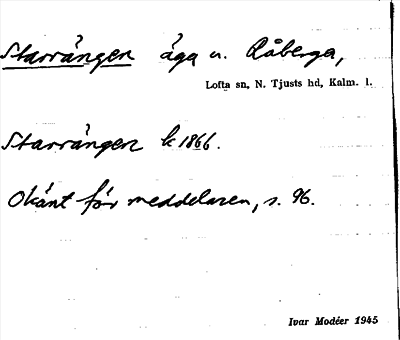 Starrängen äga u. Råberga,
Lofta sn, N. Tjusts hd, Kalm. l.
Starrängen k 1866.
Okänt för meddelaren, s. 96.
Ivar Modéer 1945